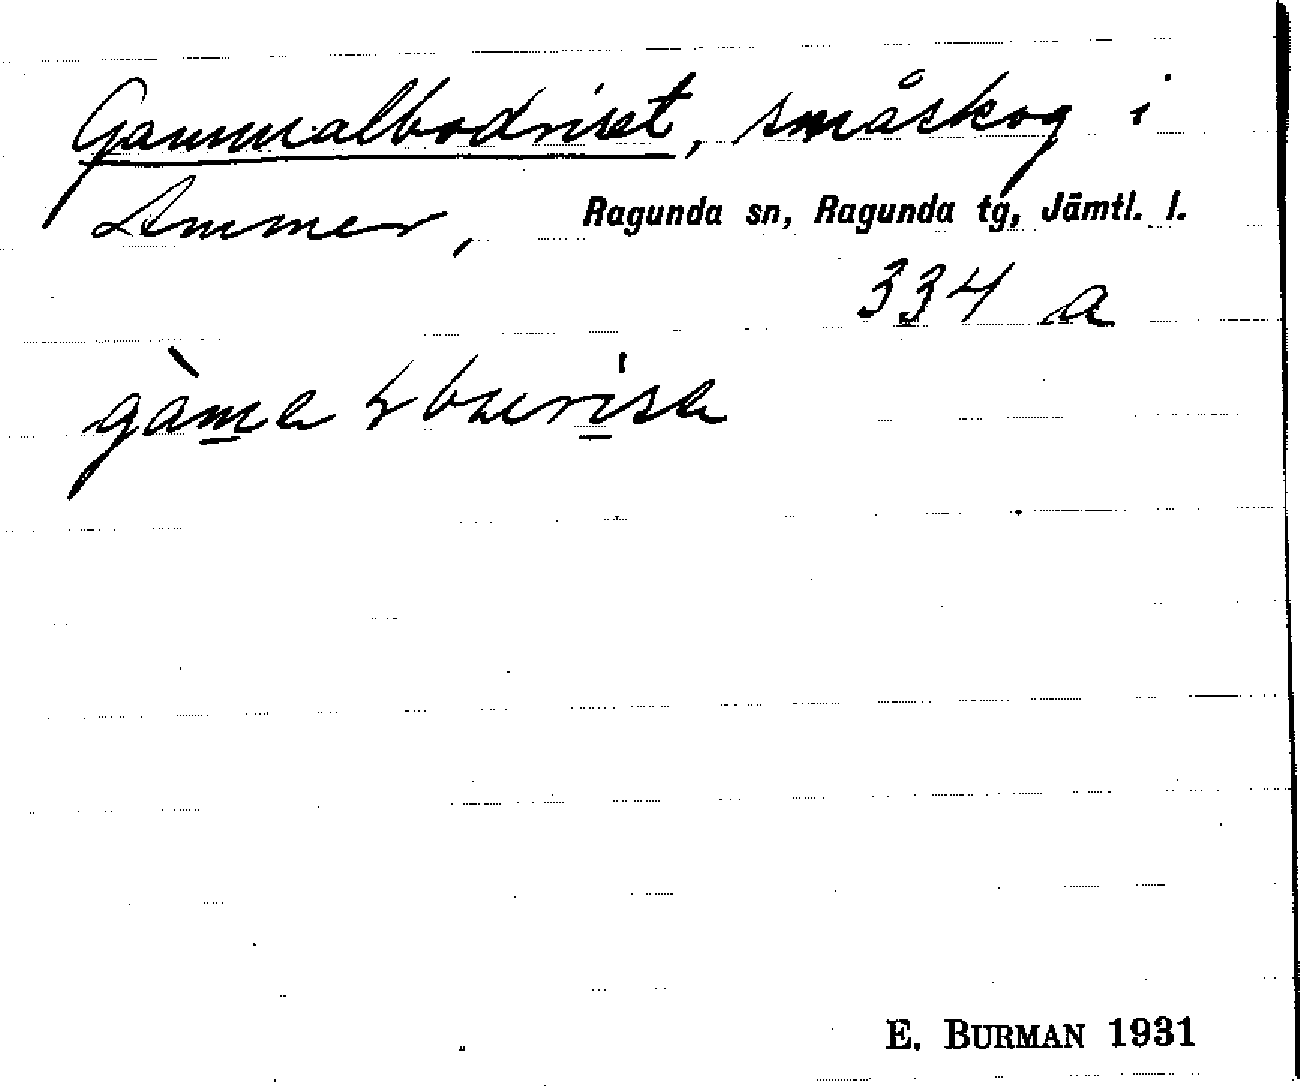 Gammalbodriset, småskog i
Ammer, Ragunda sn, Ragunda tg, Jämtl. l.
334 a
E. BURMAN 1931